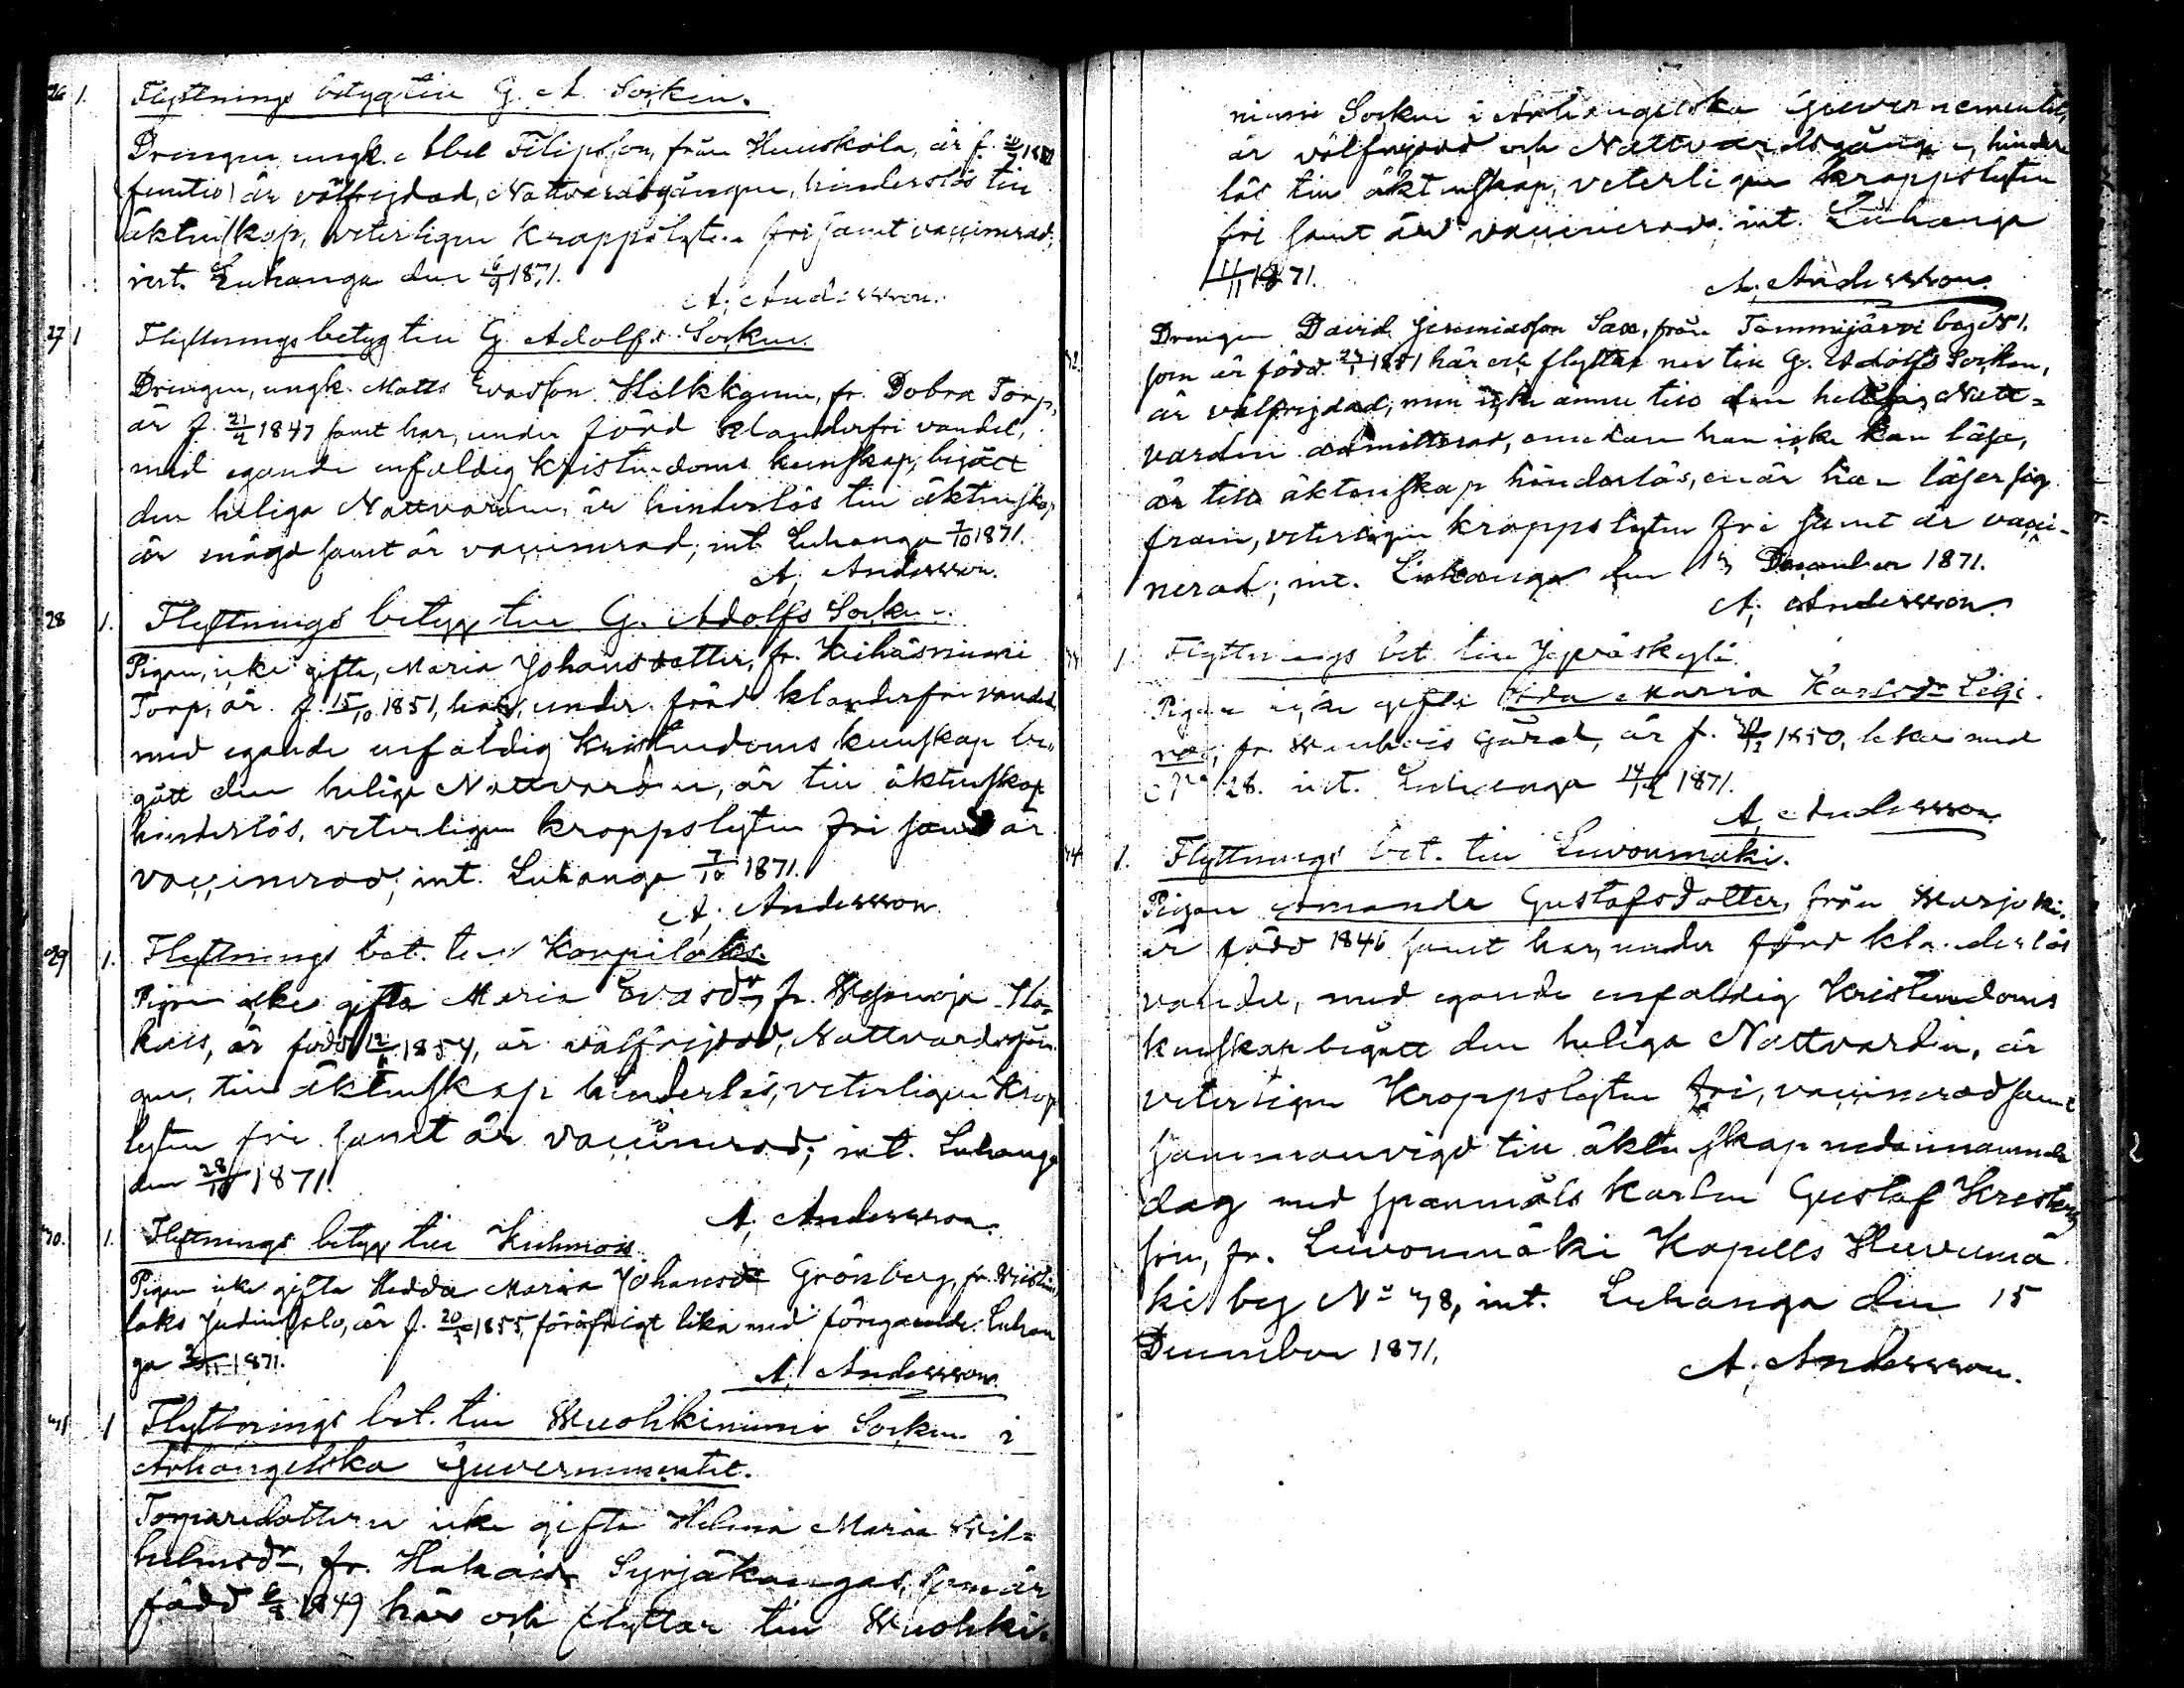 26 1. Flyttnings betyg till G. A. Socken.
Drengen, ungk. Abel Filipsson, från Huuskola, är f.
är välfrejdad, Nattvardsgången, hinderslös till
äktenskap, veterligen kroppslyten fri samt vaccinerad,
int. Luhanga den 6/9 1871.
A. Andersson.
27 1 Flyttningsbetyg till G. Adolfs Socken.
Drengen, ungk. Matts Evasson Halkkgunn, fr. Dobra Torp,
är f. 21/2 1847 samt har, under förd klanderfri vandel,
med egande enfaldig Kristendoms kunskap, begått
den heliga Nattvarden, är hinderlös till äktenskap
är mägd samt är vaccinerad; int. Luhanga 7/10 1871.
A. Andersson.
28 1. Flyttnings betyg till G. Adolfs Socken.
Pigan, icke gifta, Maria Johansdotter, fr. Keihäsniemi
Torp, är f. 15/10 1851, har, under förd klanderfri vandel,
med egande enfaldig Kristendoms kunskap be-
gått den heliga Nattvarden, är till äktenskap
hinderlös, veterligen kroppslyten fri samt är
vaccinerad; int. Luhanga 7/10 1871.
A. Andersson.
29 1. Flyttnings bet. till Korpilaks.
Pigan icke gifta Maria Evasdr, fr. Ha-
kais, är född 1854, är välfrejdad, Nattvardsgån-
gen, till äktenskap hinderlös, veterligen Krop
lyten fri samt är vaccinerad; int. Luhanga
den 28/10 1871.
A. Andersson.
30. 1. Flyttnings betyg till Kuhmois.
Pigan icke gifta Hedda Maria Johansdr Grönberg, fr.
laks är f. 20/ 1855, föröfrigt lika med föregående. Luhan
ga 1871.
A. Andersson.
31 1 Flyttnings bet. till Wuohkiniemi Socken i
Arhangelska Guvernementet.
Torparedottern icke gifta Helena Maria Wil-
helmsdr, fr. Hakais Syrjäkangas, som är
född 1849 här och flyttar till Wuohki-
niemi Socken i Arhangelska Guvernementet,
är välfrejdad och Nattvardsgången, hinder
lös till äktenskap, veterligen kroppslyten
fri samt är vaccinerad; int. Luhanga
11/11 1871.
A. Andersson.
32. Drengen David Jeremiasson Sax, från Tammijärvi by
som är född 1851 här och flyttar nu till G. Adolfs Socken,
är välfrejdad, men icke ännu till den heliga Natt-
varden admitterad, emedan han icke kan läsa,
är till äktenskap hinderlös, enär han läser sig
fram, veterligen kroppslyten fri samt är vacci-
nerad; int. Luhanga den December 1871.
A. Andersson.
33 1. Flyttnings bet. till Jyväskylä.
Pigan icke gifta Ida Maria Karlsdr
fr. gård, är f. 1850, lika med
No 28. int. Luhanga 14/12 1871.
A. Andersson.
34 1. Flyttnings bet. till Leivonmäki.
Pigan Amanda Gustafsdotter, från
är född 1846 samt har, under förd klanderlös
vandel, med egande enfaldig Kristendoms
kunskap begått den heliga Nattvarden, är
veterligen Kroppslyten fri, vaccinerad samt
sammanvigd till äktenskap nedannämnde
dag med spannmåls karlen Gustaf Krist
son, fr. Leivonmäki Kapells
ki by No 8, int. Luhanga den 15
December 1871.
A. Andersson.